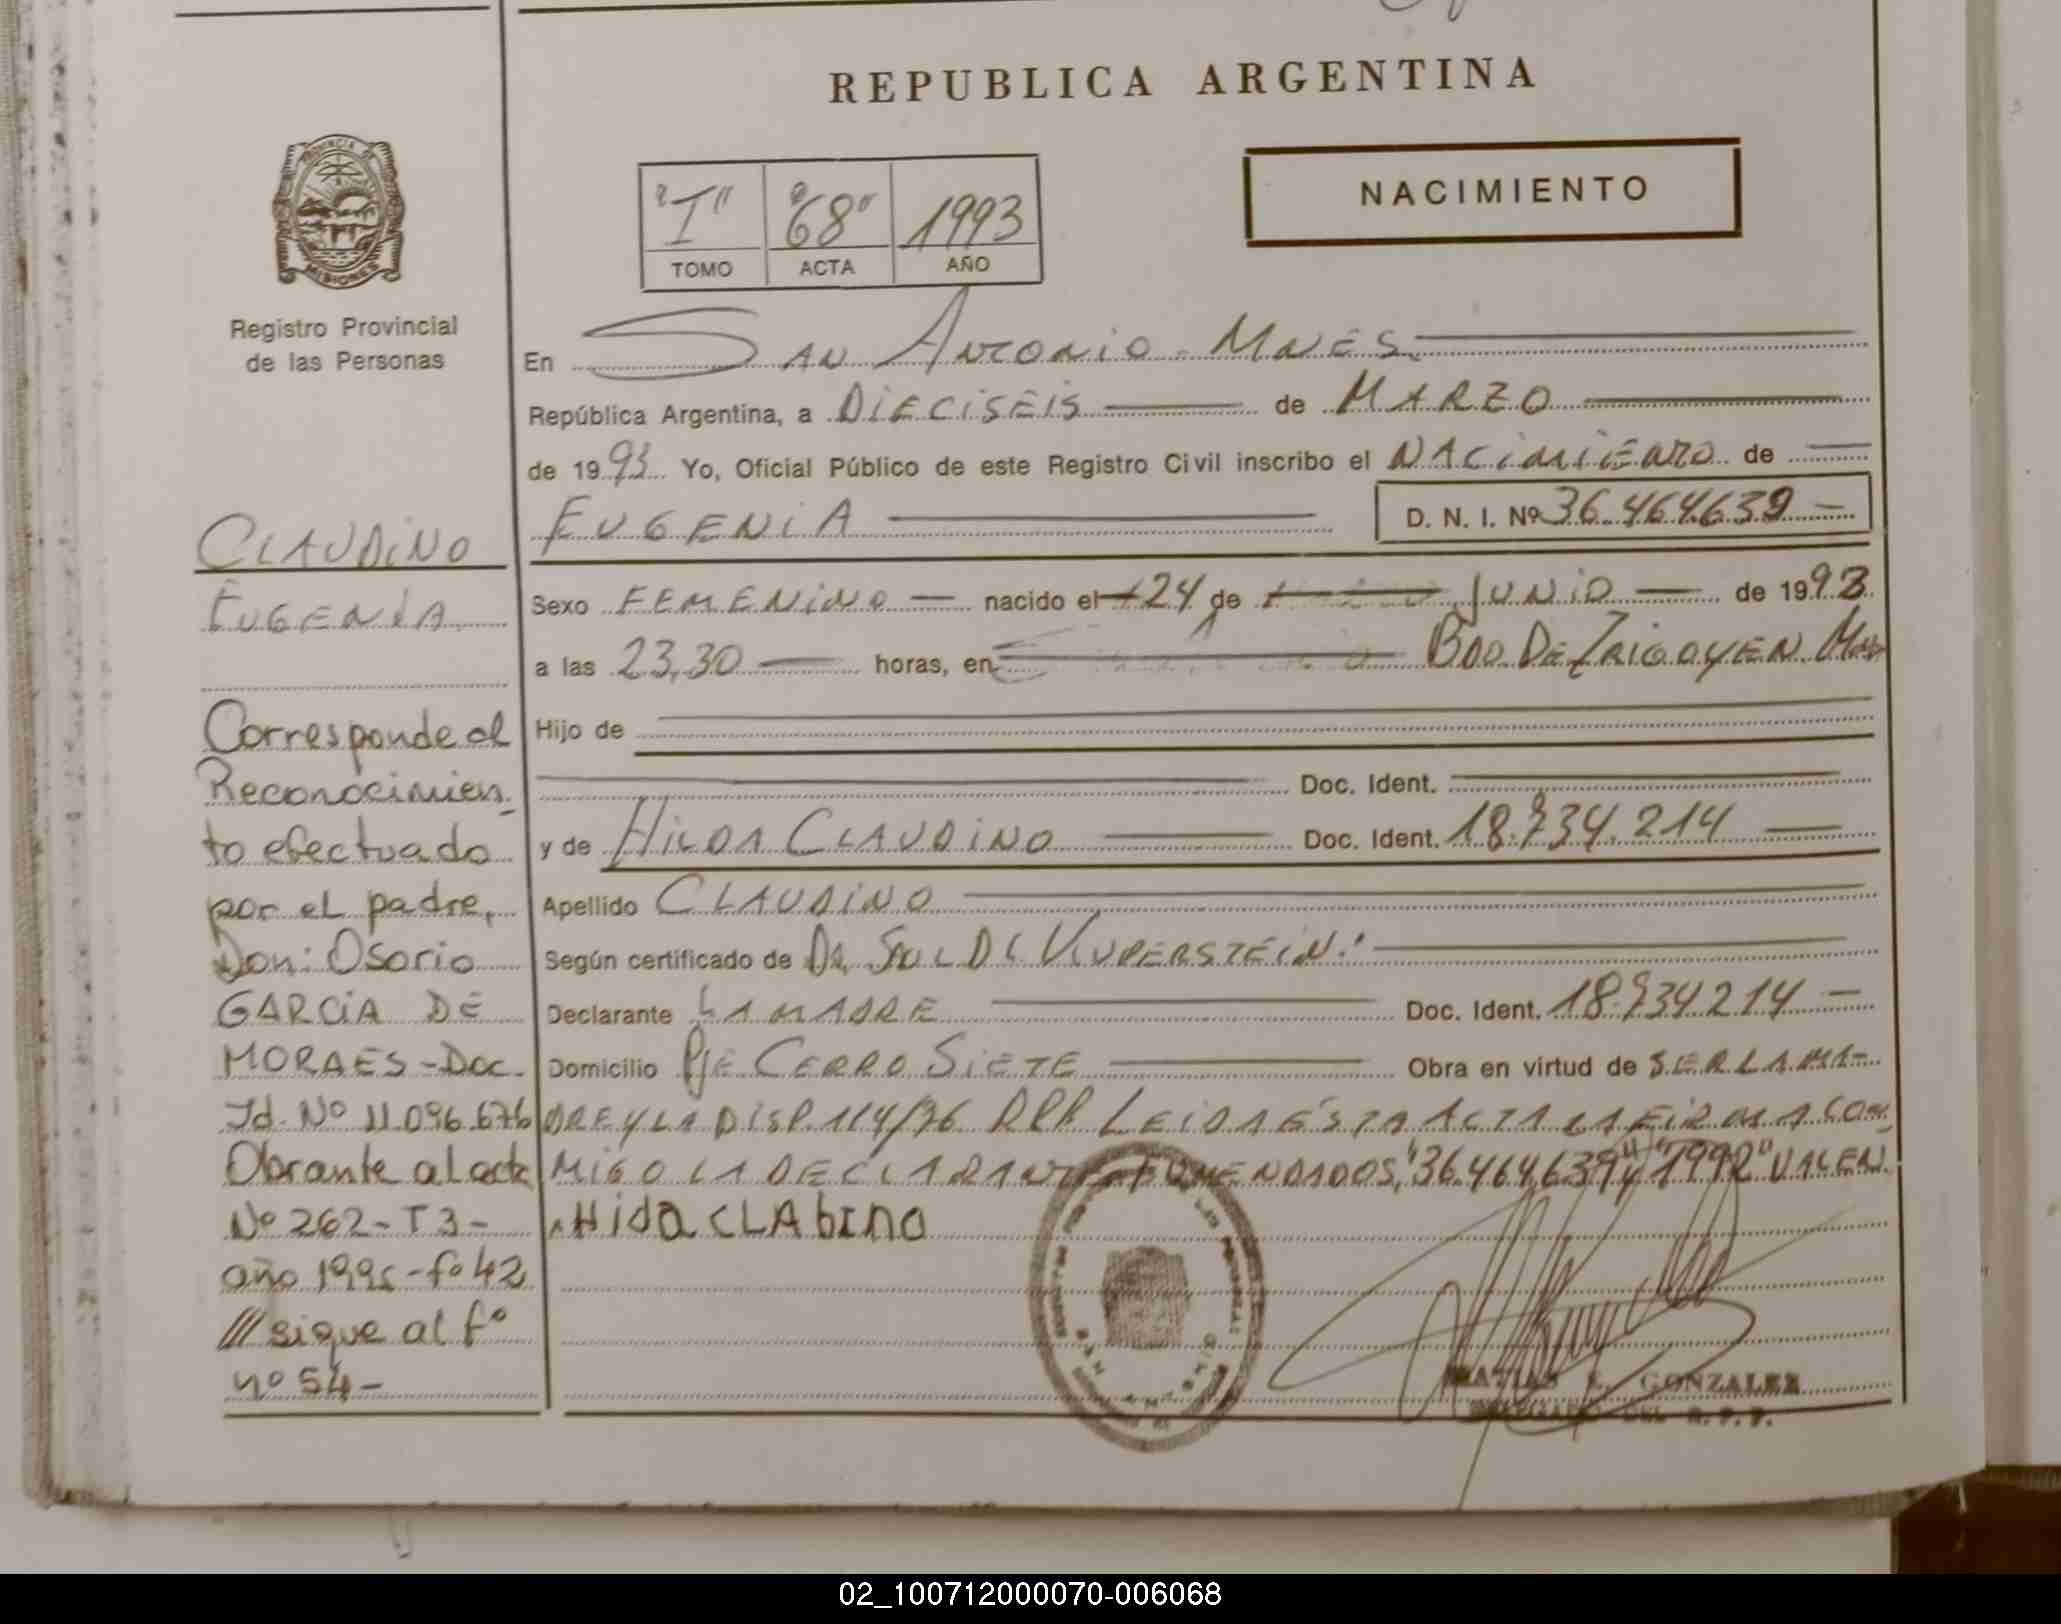 REPUBLICA ARGENTINA
NACIMIENTO
"I" "68" 1993
TOMO ACTA AÑO
PROVINCIA DE
MISIONES
Registro Provincial
de las Personas
En San Antonio - Mnes.
República Argentina, a Dieciseis de Marzo
de 1993 Yo, Oficial Público de este Registro Civil inscribo el Nacimiento de
Eugenia D. N. I. Nº 36.464.639
Sexo Femenino nacido el 24 de Junio de 199
a las 23,30 horas, en Bdo. De Irigoyen.
Hijo de
Doc. Ident.
y de Hilda Claudino Doc. Ident. 18.734.214
Apellido Claudino
Según certificado de Dr.
Declarante La Madre Doc. Ident. 18.734.214
Domicilio Pje Cerro Siete Obra en virtud de ser la ma-
dre y la Disp. 114/76 Leida esta acta la firma con
migo la declarante Enmendados, "36.464.639" y "1992" valen.
Hida CLAbino
MATIAS GONZALEZ
DELEGADO DEL R.P.P.
Claudino
Eugenia
Corresponde al
Reconocimien-
to efectuado
por el padre,
Don: Osorio
GARCIA DE
MORAES - Doc.
Id. Nº 11.096.676
Obrante al acta
Nº 262 - T 3 -
año - fº 42
/// sigue al fº
nº 54 -
02_100712000070-006068